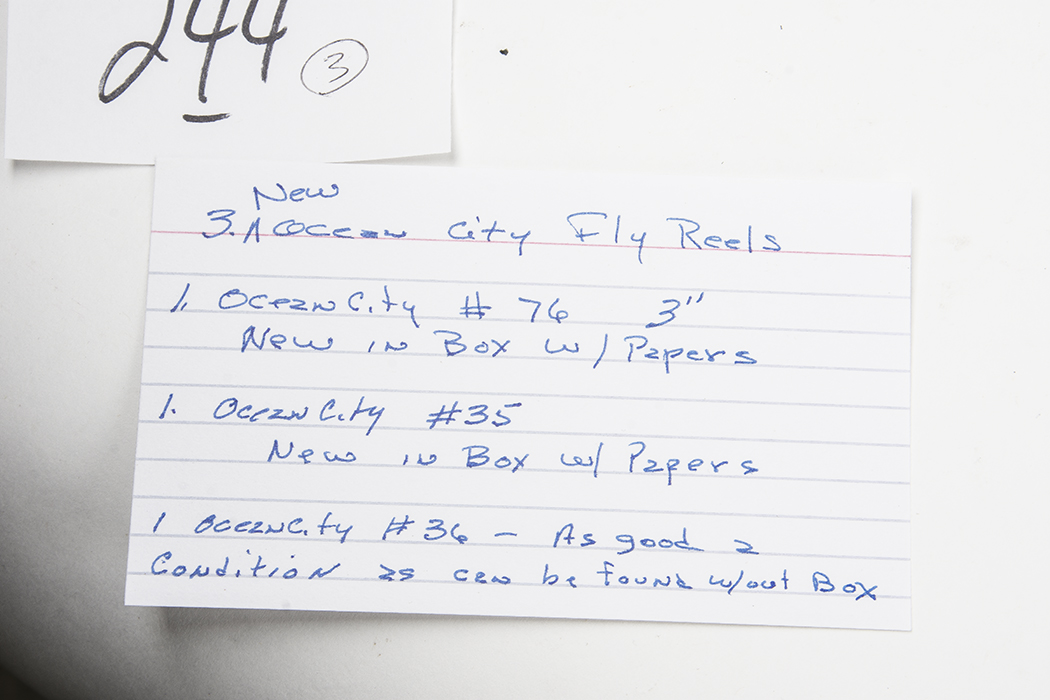 244 3
New
3. ^ Ocean City Fly Reels
1. Ocean City # 76 3"
New in Box w/ Papers
1. Ocean City #35
New in Box w/ Papers
1 Ocean City #36 - As good a
Condition as can be found w/out Box